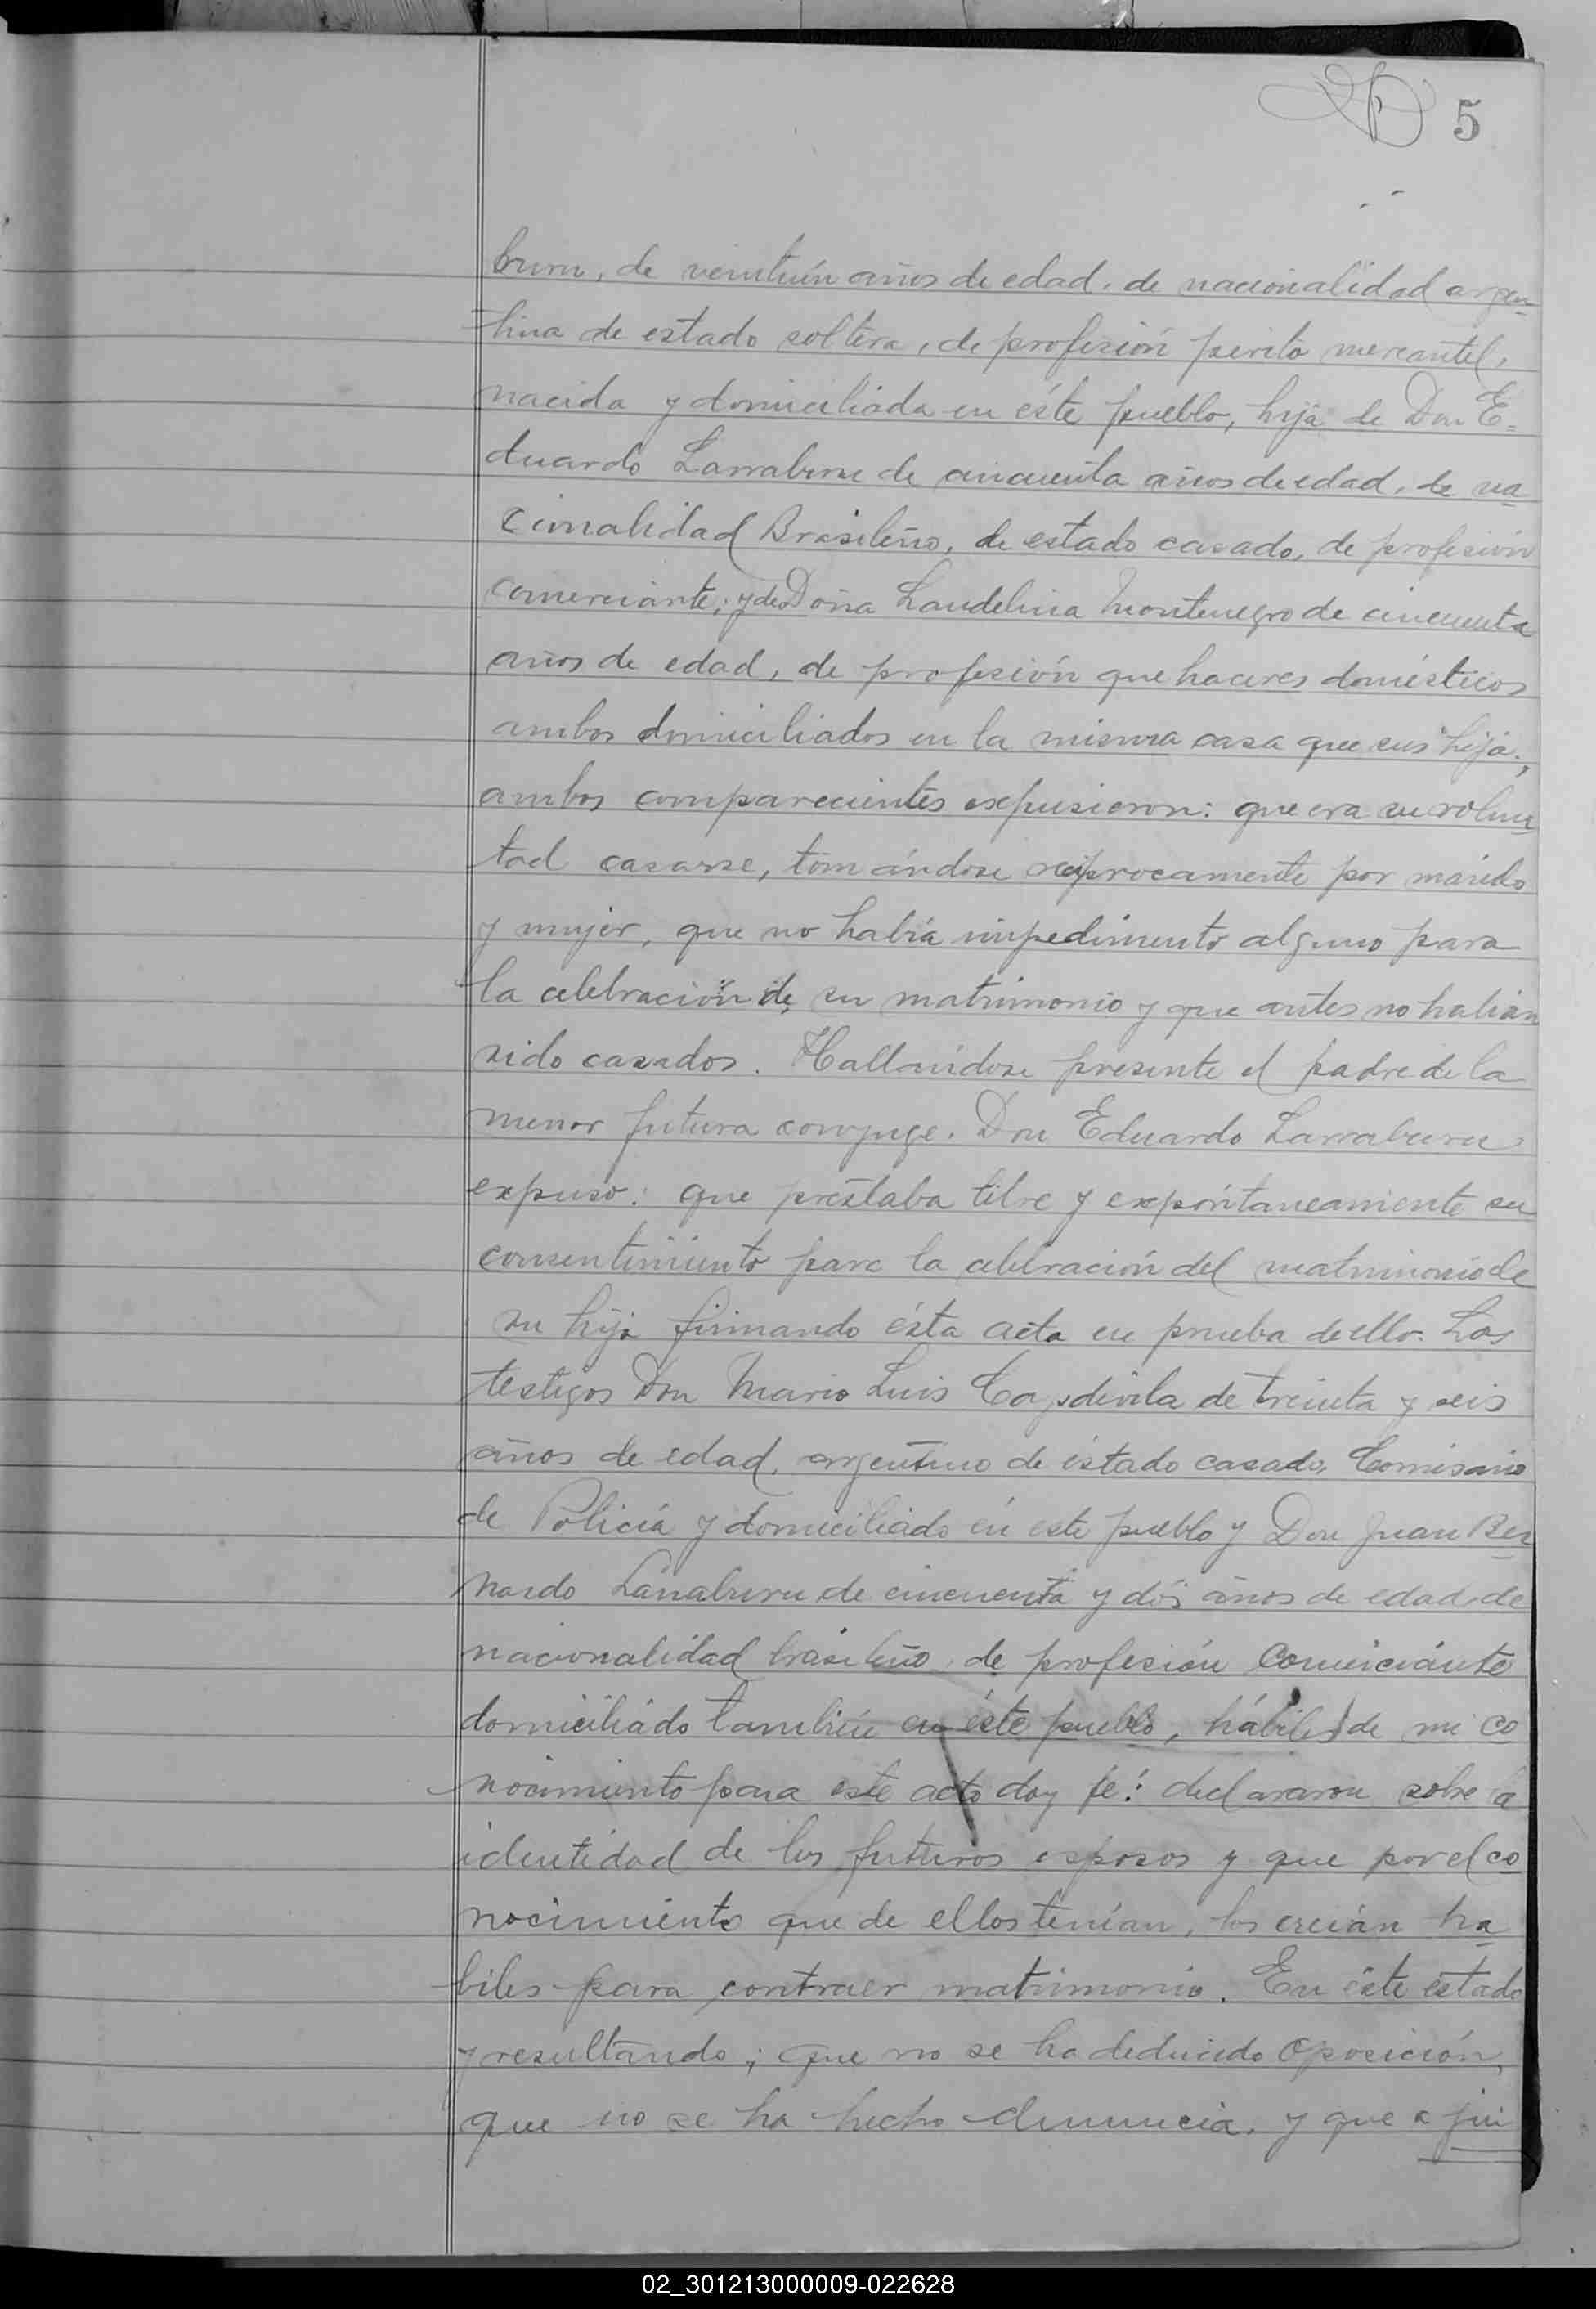 5
buru, de veintiún años de edad, de nacionalidad argen-
tina de estado soltera, de profesión perito mercantil,
nacida y domiciliada en éste pueblo, hija de Don E=
duardo Larraburu de cincuenta años de edad, de na
cionalidad Brasileño, de estado casado, de profesión
comerciante; y de Doña Laudelina Montenegro de cincuenta
años de edad, de profesión que haceres domésticos
ambos domiciliados en la misma casa que sus hija;
ambos comparecientes expusieron: que era su volun
tad casarse, tomándose recíprocamente por marido
y mujer, que no había impedimento alguno para
la celebración de su matrimonio y que antes no habían
sido casados. Hallándose presente el padre de la
menor futura conyuge. Don Eduardo Larraburu
expuso: que prestaba libre y expontaneamente su
consentimiento para la celebración del matrimonio de
su hija firmando ésta acta en prueba de ello. Los
testigos Don Mario Luis Capdevila de treinta y seis
años de edad, argentino de estado casado, Comisario
de Policía y domiciliado en este pueblo y Don Juan Ber
nardo Larraburu de cincuenta y dos años de edad, de
nacionalidad brasileño, de profesión Comerciante
domiciliado también en éste pueblo, hábiles de mi co
nocimiento para este acto doy fe: declararon sobre la
identidad de los futuros esposos y que por el co
nocimiento que de ellos tenían, los creían ha
biles para contraer matrimonio. En éste estado
y resultando; que no se ha deducido oposición,
que no se ha hecho denuncia, y que a jui
02_301213000009-022628